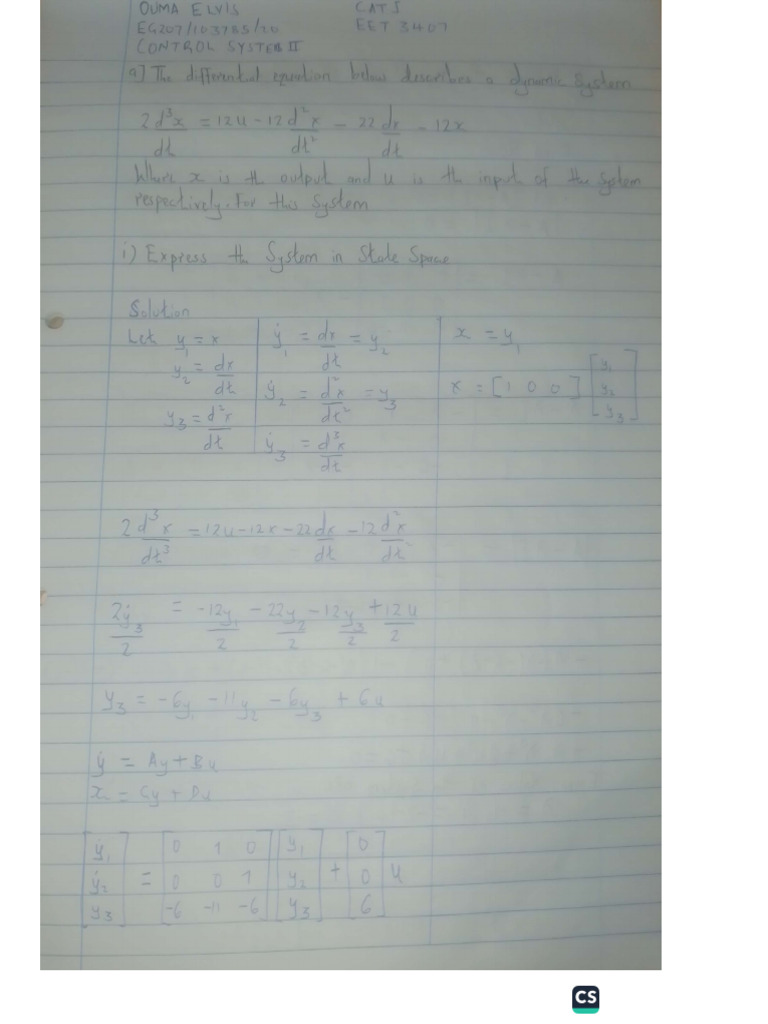 OUMA ELVIS CAT I
EG207/103785/20 EET 3407
CONTROL SYSTEM II
a] The differential equation below describes a dynamic System
2 d³x/dt = 12u - 12 d²x/dt² - 22 dx/dt - 12x
Where x is th output and u is th input of the System
respectively. For this System
i) Express th System in State Space
Solution
Let y₁ = x
y₂ = dx/dt
y₃ = d²x/dt
ẏ₁ = dx/dt = y₂
ẏ₂ = d²x/dt² = y₃
ẏ₃ = d³x/dt
x = y₁
x = [1 0 0] [y₁ y₂ y₃]
2 d³x/dt³ = 12u - 12x - 22 dx/dt - 12 d²x/dt
2ẏ₃/2 = -12y₁/2 - 22y₂/2 - 12y₃/2 + 12u/2
y₃ = -6y₁ - 11y₂ - 6y₃ + 6u
ẏ = Ay + Bu
x = Cy + Du
[ẏ₁] [0 1 0] [y₁] [0]
[ẏ₂] = [0 0 1] [y₂] + [0] u
[y₃] [-6 -11 -6] [y₃] [6]
CS